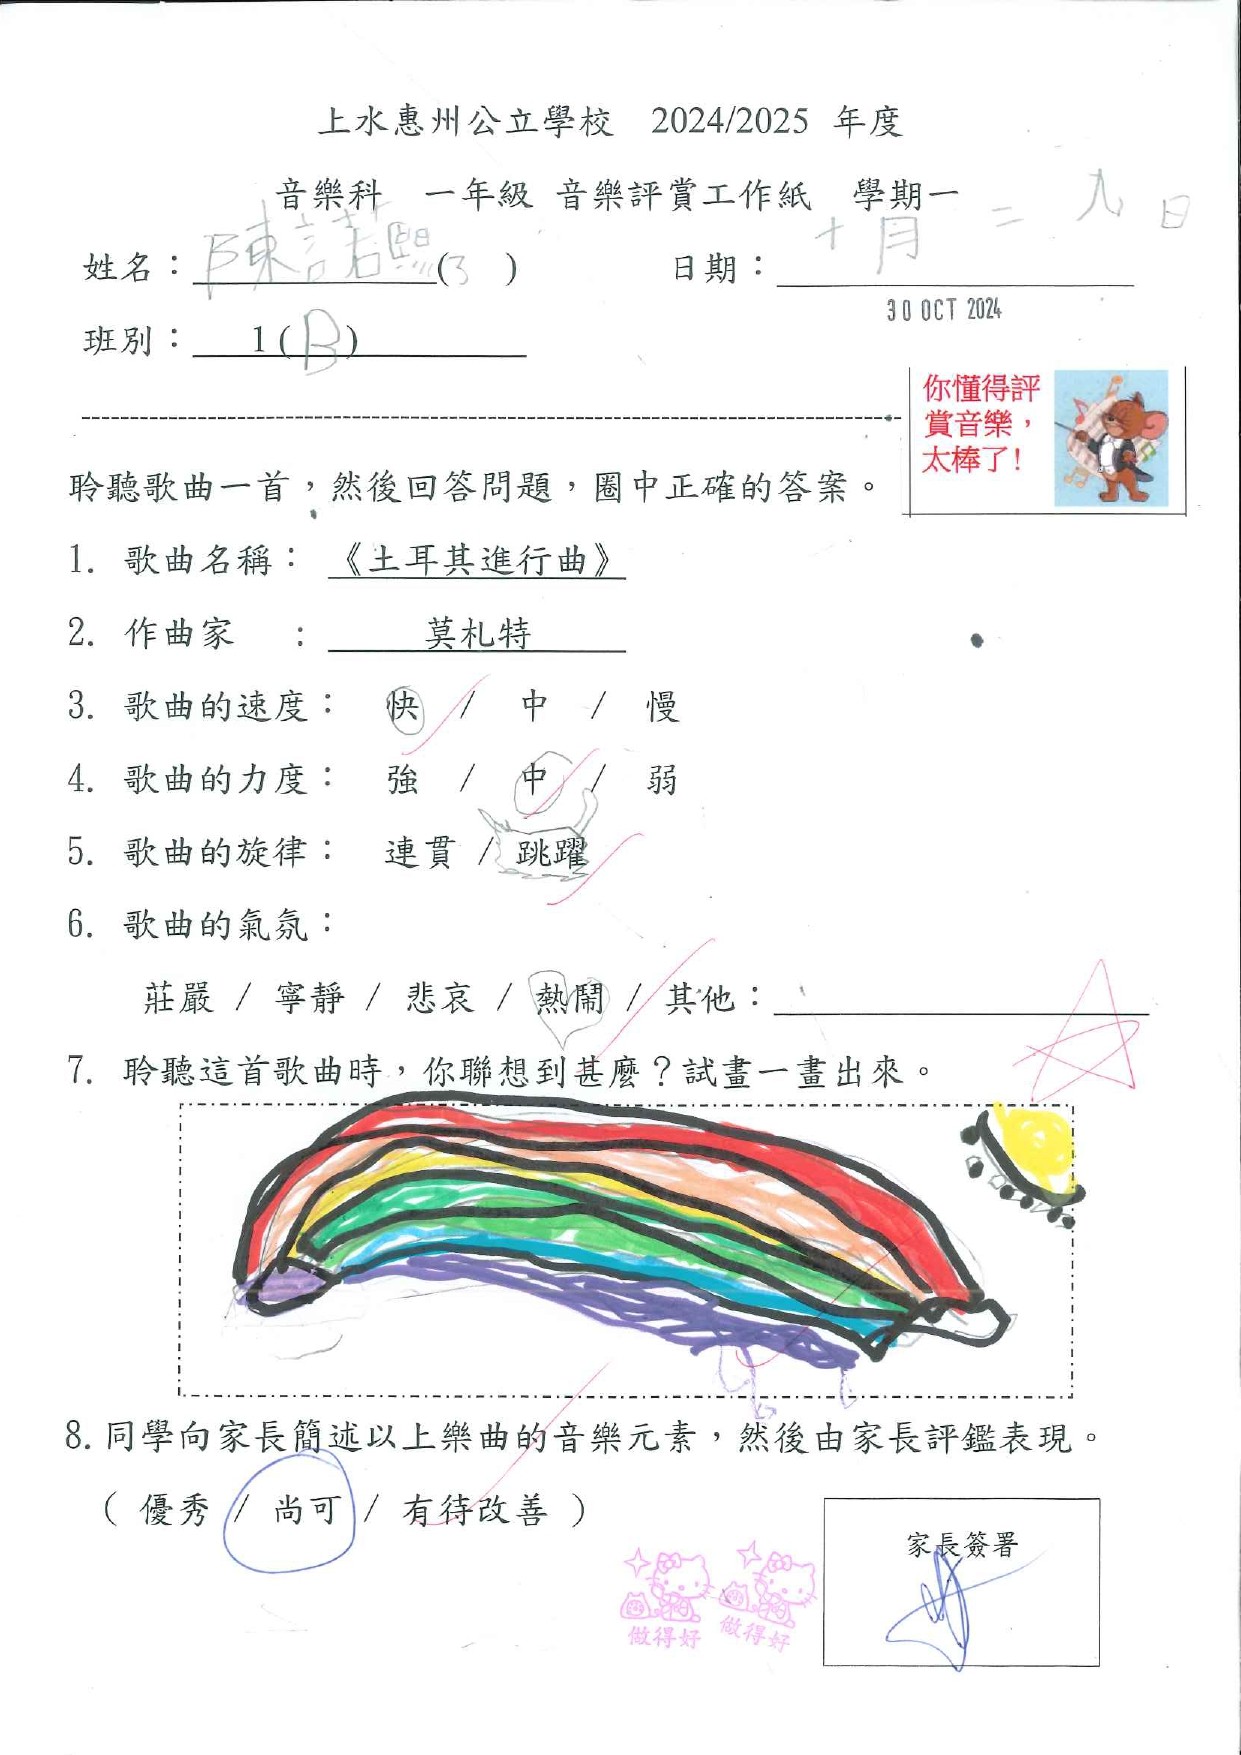 上水惠州公立學校 2024/2025 年度
音樂科 一年級 音樂評賞工作紙 學期一
姓名：陳諾熙(3 ) 日期：十月二九日
30 OCT 2024
班別：1(B)
你懂得評
賞音樂，
太棒了!
聆聽歌曲一首，然後回答問題，圈中正確的答案。
1. 歌曲名稱：《土耳其進行曲》
2. 作曲家 : 莫札特
3. 歌曲的速度： 快 / 中 / 慢
4. 歌曲的力度： 強 / 中 / 弱
5. 歌曲的旋律： 連貫 / 跳躍
6. 歌曲的氣氛：
莊嚴 / 寧靜 / 悲哀 / 熱鬧 / 其他：
7. 聆聽這首歌曲時，你聯想到甚麼？試畫一畫出來。
8. 同學向家長簡述以上樂曲的音樂元素，然後由家長評鑑表現。
( 優秀 / 尚可 / 有待改善 )
家長簽署
做得好 做得好